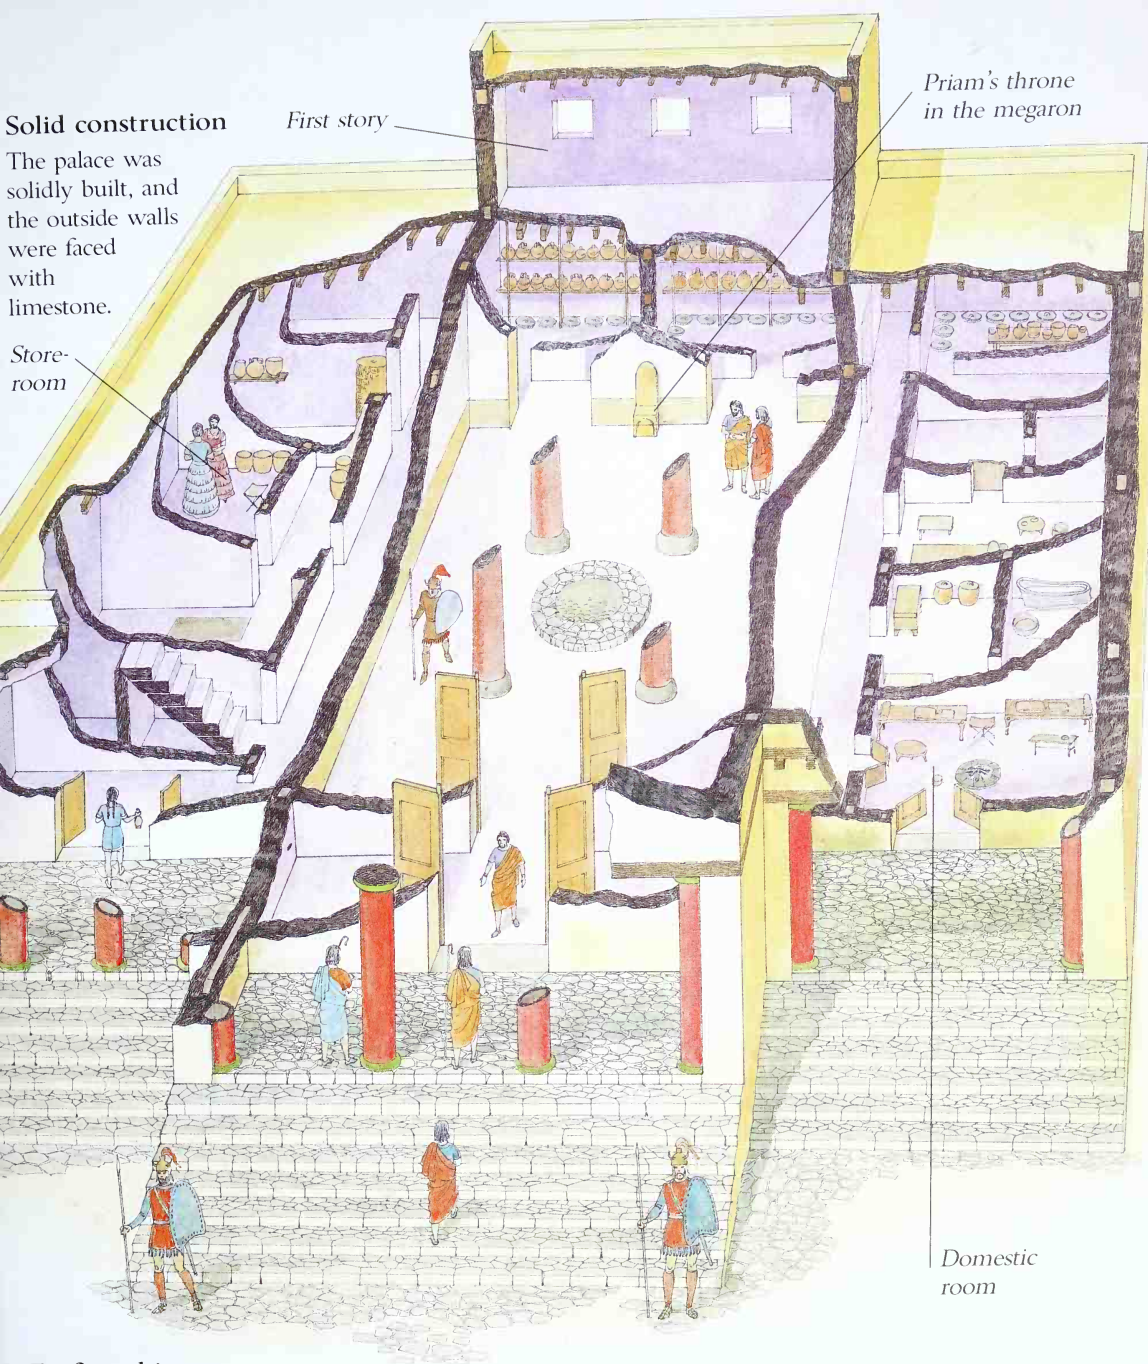 Solid construction
The palace was
solidly built, and
the outside walls
were faced
with
limestone.
Store-
room
First story
Priam's throne
in the megaron
Domestic
room